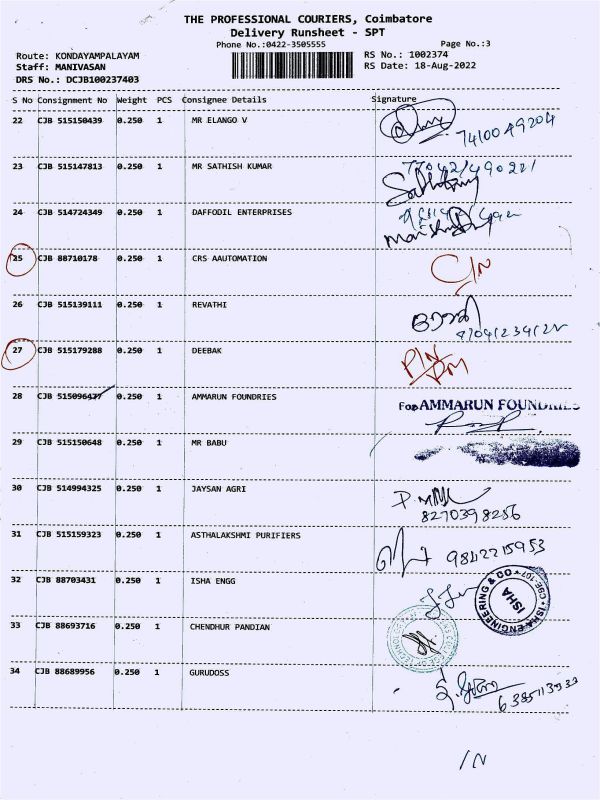 THE PROFESSIONAL COURIERS, Coimbatore
Delivery Runsheet - SPT
Phone No.:0422-3505555 Page No.:3
Route: KONDAYAMPALAYAM RS No.: 1002374
Staff: MANIVASAN RS Date: 18-Aug-2022
DRS No.: DCJB100237403
S No Consignment No Weight PCS Consignee Details Signature
22 CJB 515150439 0.250 1 MR ELANGO V
7410049204
23 CJB 515147813 0.250 1 MR SATHISH KUMAR
24 CJB 514724349 0.250 1 DAFFODIL ENTERPRISES
25 CJB 88710178 0.250 1 CRS AAUTOMATION C/N
26 CJB 515139111 0.250 1 REVATHI
27 CJB 515179288 0.250 1 DEEBAK P/N
28 CJB 515096437 0.250 1 AMMARUN FOUNDRIES For AMMARUN FOUNDRIES
29 CJB 515150648 0.250 1 MR BABU
30 CJB 514994325 0.250 1 JAYSAN AGRI
8270398256
31 CJB 515159323 0.250 1 ASTHALAKSHMI PURIFIERS 9842215953
32 CJB 88703431 0.250 1 ISHA ENGG
ISHA ENGINEERING & CO
ISHA
33 CJB 88693716 0.250 1 CHENDHUR PANDIAN
34 CJB 88689956 0.250 1 GURUDOSS
/N